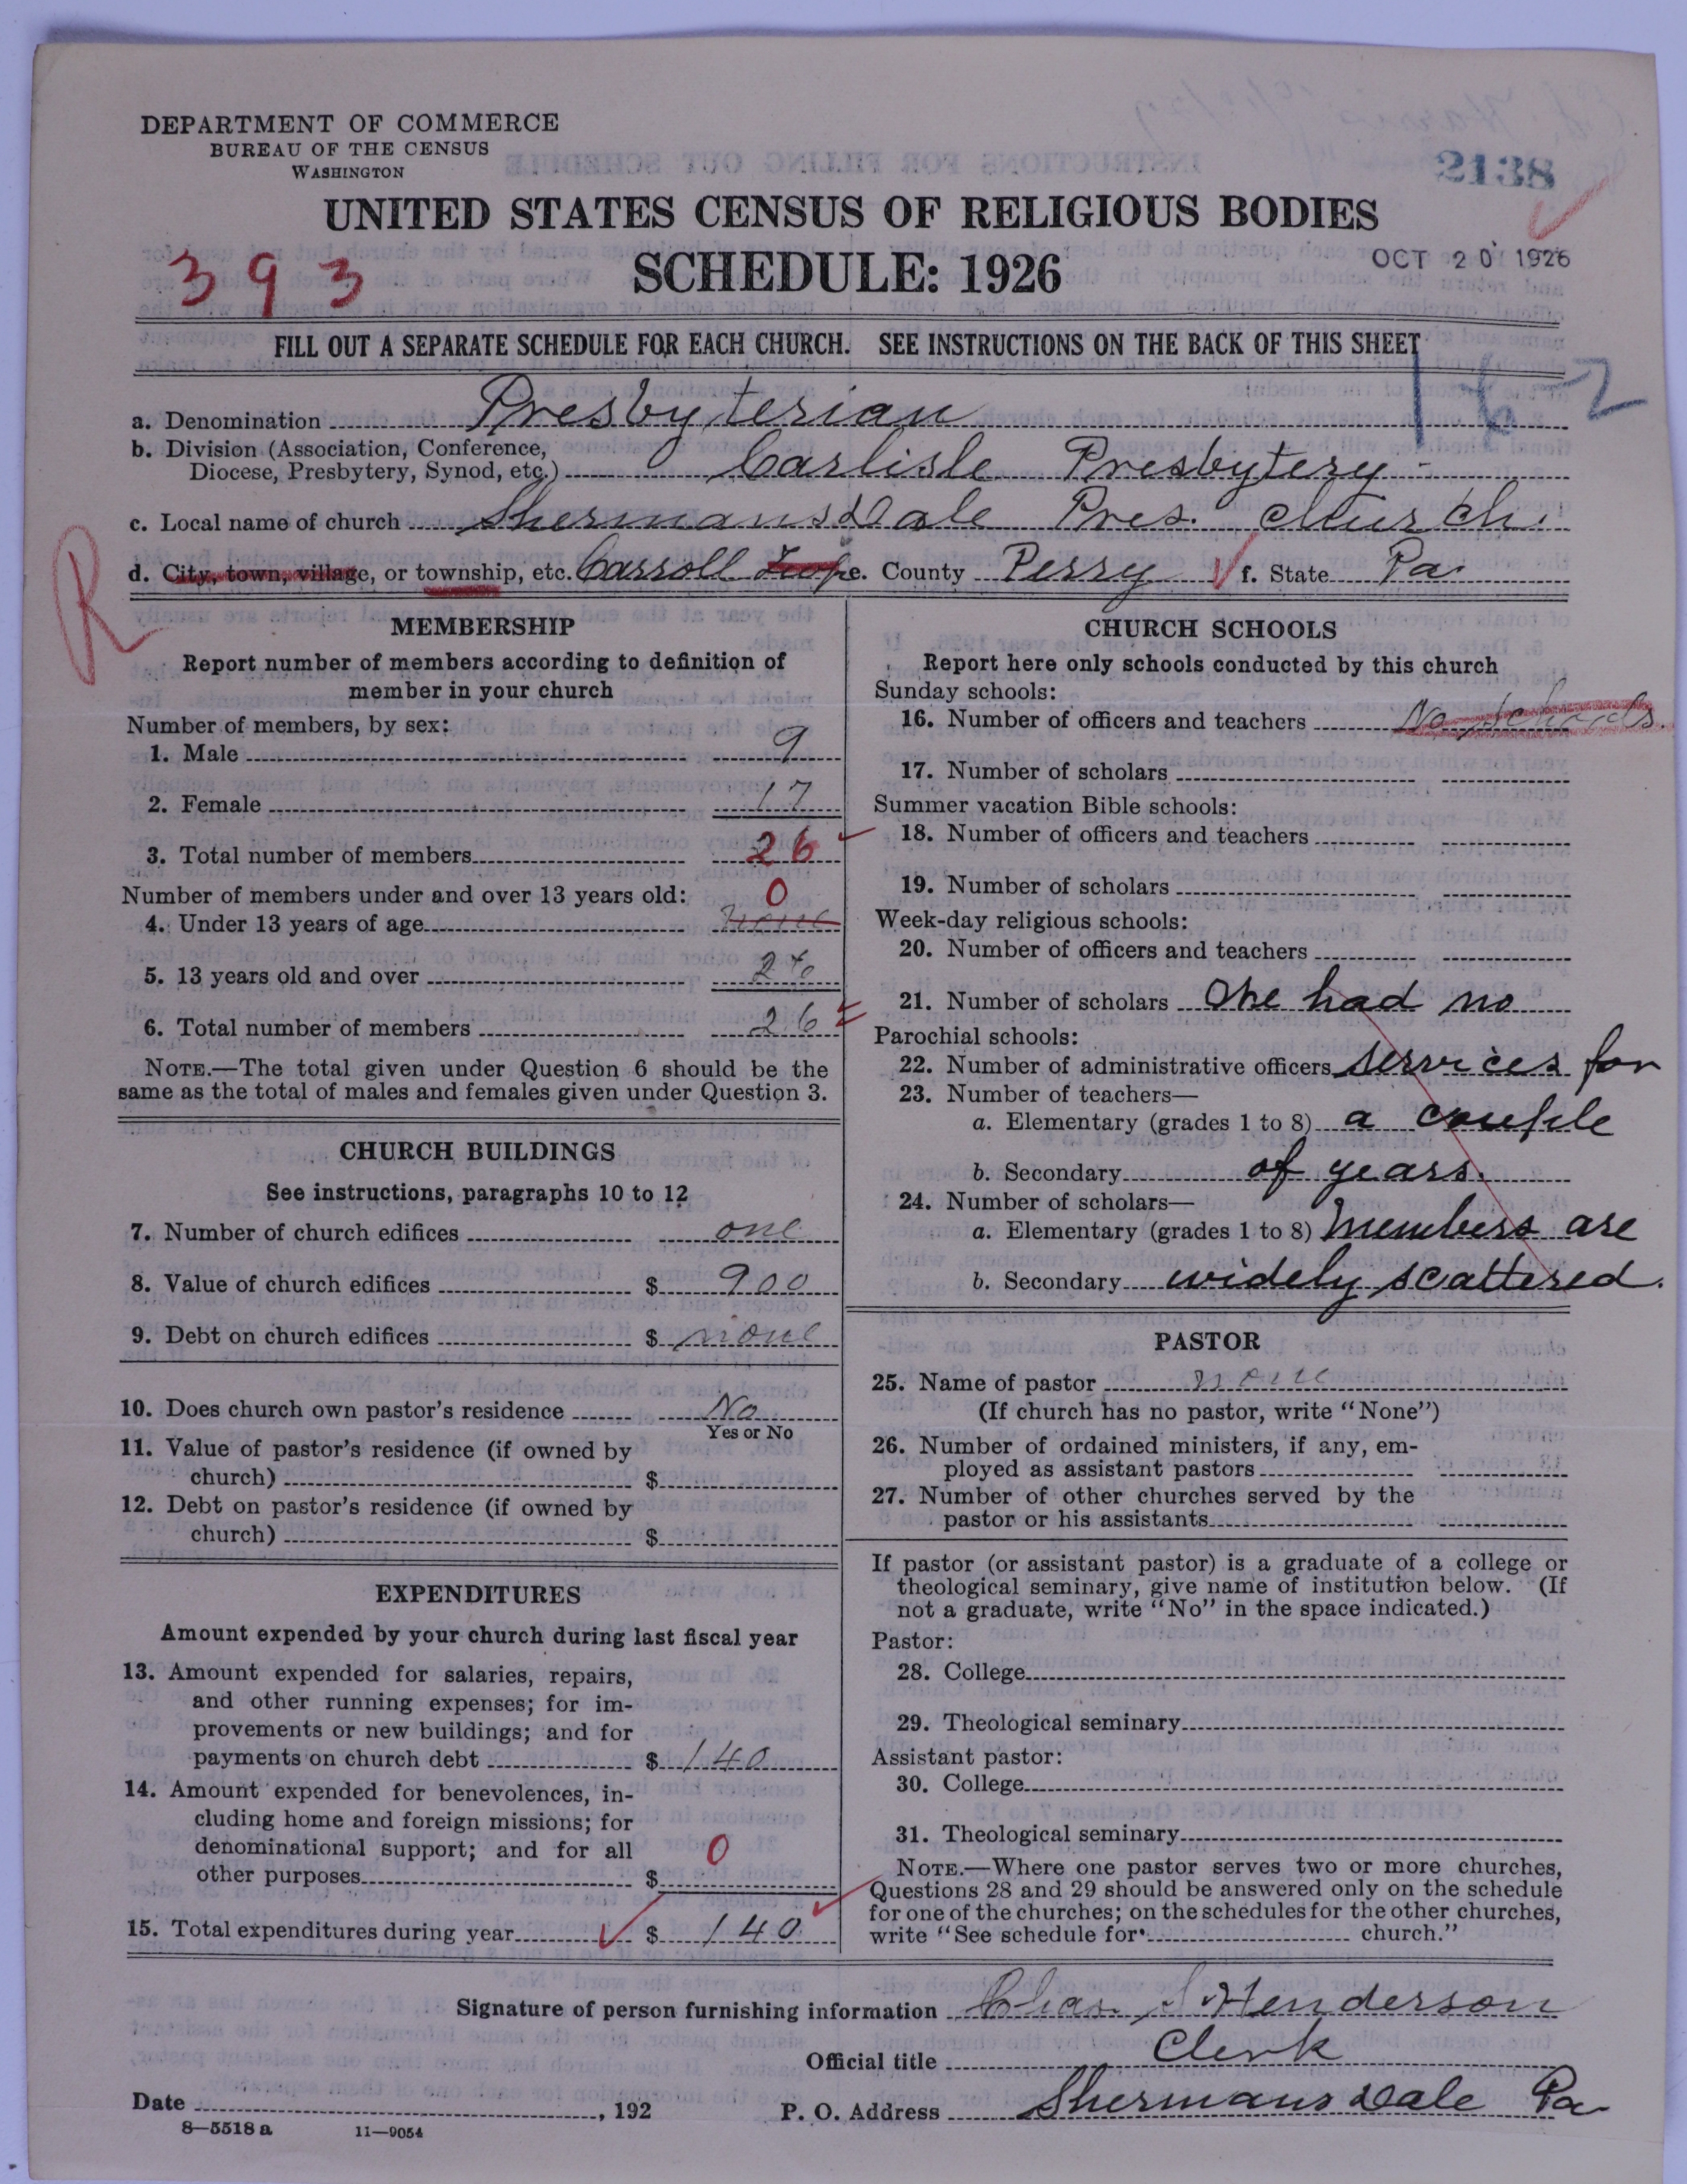 DEPARTMENT OF COMMERCE
BUREAU OF THE CENSUS
WASHINGTON
2138
UNITED STATES CENSUS OF RELIGIOUS BODIES
393 SCHEDULE: 1926
OCT 20 1926
FILL OUT A SEPARATE SCHEDULE FOR EACH CHURCH. SEE INSTRUCTIONS ON THE BACK OF THIS SHEET
a. Denomination Presbyterian
b. Division (Association, Conference,
Diocese, Presbytery, Synod, etc.) Carlisle Presbytery
c. Local name of church Shermansdale Pres. church.
d. City, town, village, or township, etc. Carroll Twp e. County Perry f. State Pa
R
MEMBERSHIP
Report number of members according to definition of
member in your church
Number of members, by sex:
1. Male 9
2. Female 17
3. Total number of members 26
Number of members under and over 13 years old: 0
4. Under 13 years of age none
5. 13 years old and over 26
6. Total number of members 26
NOTE.—The total given under Question 6 should be the
same as the total of males and females given under Question 3.
CHURCH BUILDINGS
See instructions, paragraphs 10 to 12
7. Number of church edifices one
8. Value of church edifices $ 900
9. Debt on church edifices $ none
10. Does church own pastor's residence No
Yes or No
11. Value of pastor's residence (if owned by
church) $
12. Debt on pastor's residence (if owned by
church) $
EXPENDITURES
Amount expended by your church during last fiscal year
13. Amount expended for salaries, repairs,
and other running expenses; for im-
provements or new buildings; and for
payments on church debt $ 140
14. Amount expended for benevolences, in-
cluding home and foreign missions; for
denominational support; and for all
other purposes $ 0
15. Total expenditures during year $ 140
CHURCH SCHOOLS
Report here only schools conducted by this church
Sunday schools:
16. Number of officers and teachers No schools.
17. Number of scholars
Summer vacation Bible schools:
18. Number of officers and teachers
19. Number of scholars
Week-day religious schools:
20. Number of officers and teachers
21. Number of scholars had no
Parochial schools:
22. Number of administrative officers services for
23. Number of teachers—
a. Elementary (grades 1 to 8) a couple
b. Secondary of years.
24. Number of scholars—
a. Elementary (grades 1 to 8) members are
b. Secondary widely scattered.
PASTOR
25. Name of pastor none
(If church has no pastor, write "None")
26. Number of ordained ministers, if any, em-
ployed as assistant pastors
27. Number of other churches served by the
pastor or his assistants
If pastor (or assistant pastor) is a graduate of a college or
theological seminary, give name of institution below. (If
not a graduate, write "No" in the space indicated.)
Pastor:
28. College
29. Theological seminary
Assistant pastor:
30. College
31. Theological seminary
NOTE.—Where one pastor serves two or more churches,
Questions 28 and 29 should be answered only on the schedule
for one of the churches; on the schedules for the other churches,
write "See schedule for church."
Signature of person furnishing information Chas. Henderson
Official title Clerk
Date , 192
P. O. Address Shermansdale Pa
8—5518 a 11—9054